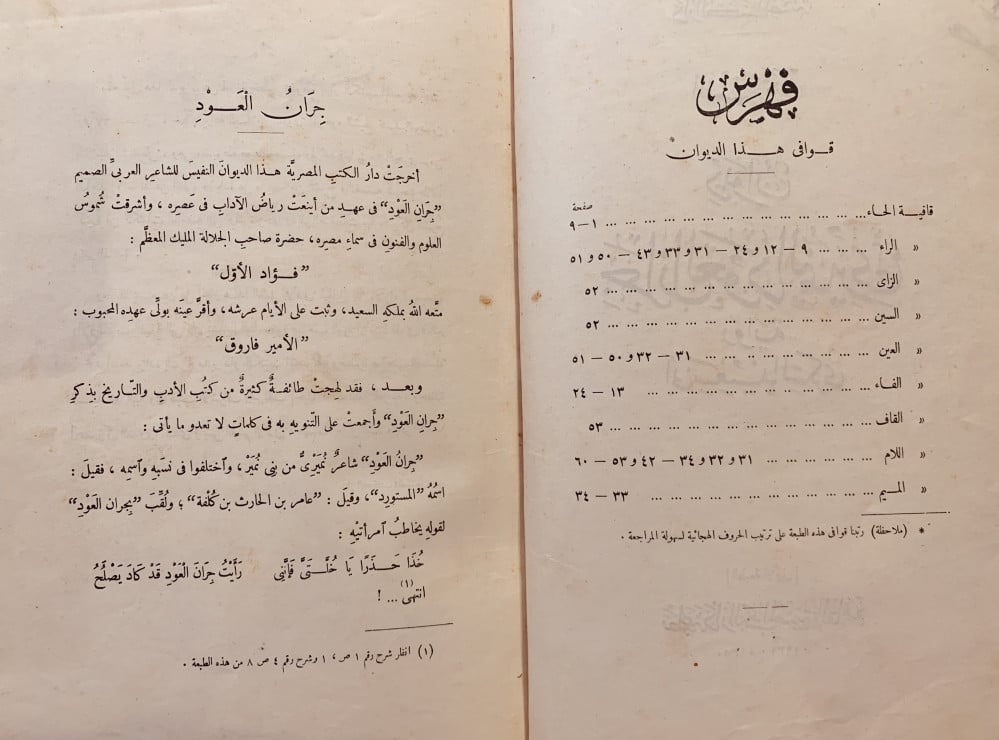 فِهْرَس
قوافى هذا الديوان*
صفحة
قافية الحاء ... ... ... ... ... ... ... ... ... ... ١ — ٩
« الراء ... ... ... ٩ — ١٢ و ٢٤ — ٣١ و ٣٣ و ٤٣ — ٥٠ و ٥١
« الزاى ... ... ... ... ... ... ... ... ... ... ٥٢
« السين ... ... ... ... ... ... ... ... ... ... ٥٢
« العين ... ... ... ... ... ... ... ٣١ — ٣٢ و ٥٠ — ٥١
« الفاء ... ... ... ... ... ... ... ... ... ١٣ — ٢٤
« القاف ... ... ... ... ... ... ... ... ... ... ٥٣
« اللام ... ... ... ... ... ٣١ و ٣٢ و ٣٤ — ٤٢ و ٥٣ — ٦٠
« الميم ... ... ... ... ... ... ... ... ... ٣٣ — ٣٤
* (ملاحظة) رتبنا قوافى هذه الطبعة على ترتيب الحروف الهجائية لسهولة المراجعة .
جِرَانُ الْعَـــوْدِ
أخرجَتْ دارُ الكتبِ المصريَّة هذا الديوانَ النفيسَ للشاعرِ العربىِّ الصميم
”جِرَانِ العَوْدِ“ فى عهدٍ من أينعَتْ رياضُ الآدابِ فى عَصرِه ، وأشرقتْ شُموسُ
العلوم والفنون فى سماءِ مصرِه، حضرة صاحبِ الجلالة المليك المعظَّم :
”فــؤاد الأوّل“
متَّعه اللهُ بملكهِ السعيد، وثبت على الأيام عرشه، وأقرَّ عينَه بولِّى عهدِه المحبوب :
”الأمير فاروق“
وبعد ، فقد لهِجتْ طائفـةٌ كثيرةٌ من كتُبِ الأدبِ والتَّاريخِ بذِكرِ
”جِرانِ العَوْدِ“ وأجمعتْ على التَّنويهِ به فى كلماتٍ لا تعدو ما يأتى :
”جِرَانُ العَوْدِ“ شاعرٌ نُمَيْرِىٌّ من بنِى نُمَيْر، واختلفوا فى نسَبِهِ واسمِه ، فقيلَ :
اسمُهُ ”المستورِد“، وقيلَ : ”عامر بن الحارث بن كُلْفة“ ؛ ولُقِّبَ ”بجِران العَوْدِ“
لقوله يخاطبُ امرأتَيْهِ :
خُذَا حَـذَرًا يَا خُلَّـتَىَّ فَإِنَّنِى رَأَيْتُ جِرَانَ الْعَوْدِ قَدْ كَادَ يَصْلُحُ
انتهى(١) ... !
(١) انظر شرح رقم ١ ص ١ ، وشرح رقم ٤ ص ٨ من هذه الطبعة .